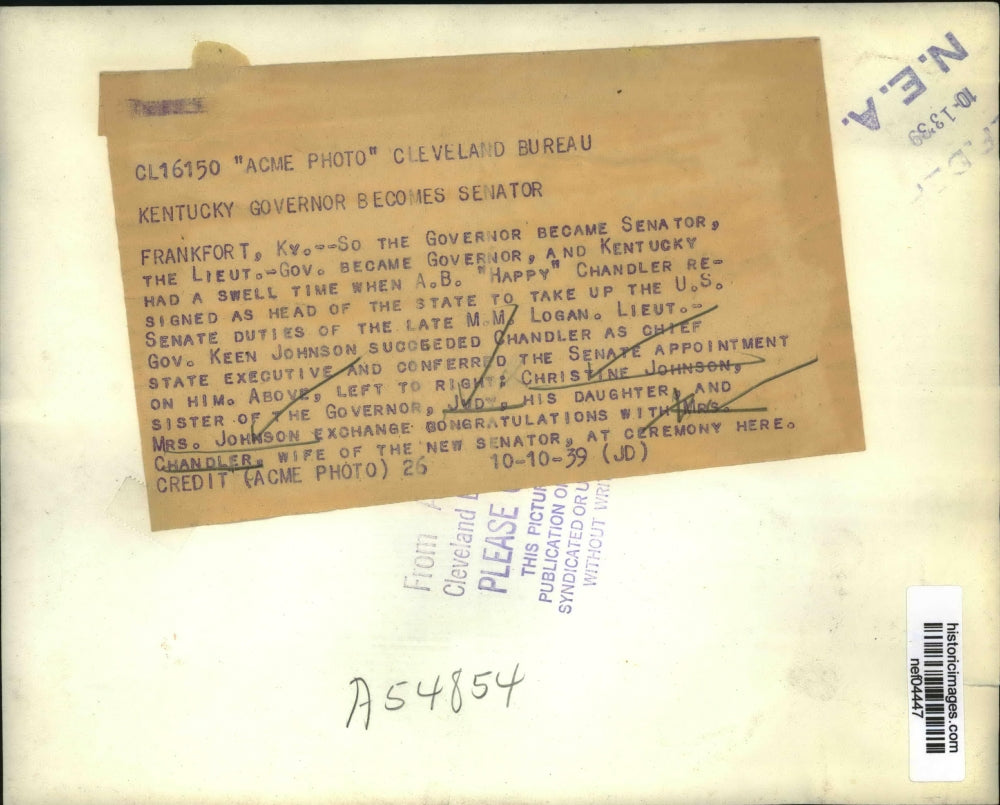 CL16150 "ACME PHOTO" CLEVELAND BUREAU
KENTUCKY GOVERNOR BECOMES SENATOR
FRANKFORT, KY.--SO THE GOVERNOR BECAME SENATOR,
THE LIEUT.-GOV. BECAME GOVERNOR, AND KENTUCKY
HAD A SWELL TIME WHEN A.B. "HAPPY" CHANDLER RE-
SIGNED AS HEAD OF THE STATE TO TAKE UP THE U.S.
SENATE DUTIES OF THE LATE M.M. LOGAN. LIEUT.-
GOV. KEEN JOHNSON SUCCEEDED CHANDLER AS CHIEF
STATE EXECUTIVE AND CONFERRED THE SENATE APPOINTMENT
ON HIM. ABOVE, LEFT TO RIGHT: CHRISTINE JOHNSON,
SISTER OF THE GOVERNOR, JUDY, HIS DAUGHTER, AND
MRS. JOHNSON EXCHANGE CONGRATULATIONS WITH MRS.
CHANDLER, WIFE OF THE NEW SENATOR, AT CEREMONY HERE.
CREDIT (ACME PHOTO) 26 10-10-39 (JD)
N.E.A.
10-13-39
From A
Cleveland
PLEASE
THIS PICTUR
PUBLICATION O
SYNDICATED OR U
WITHOUT WRI
A54854
historicimages.com
nef04447